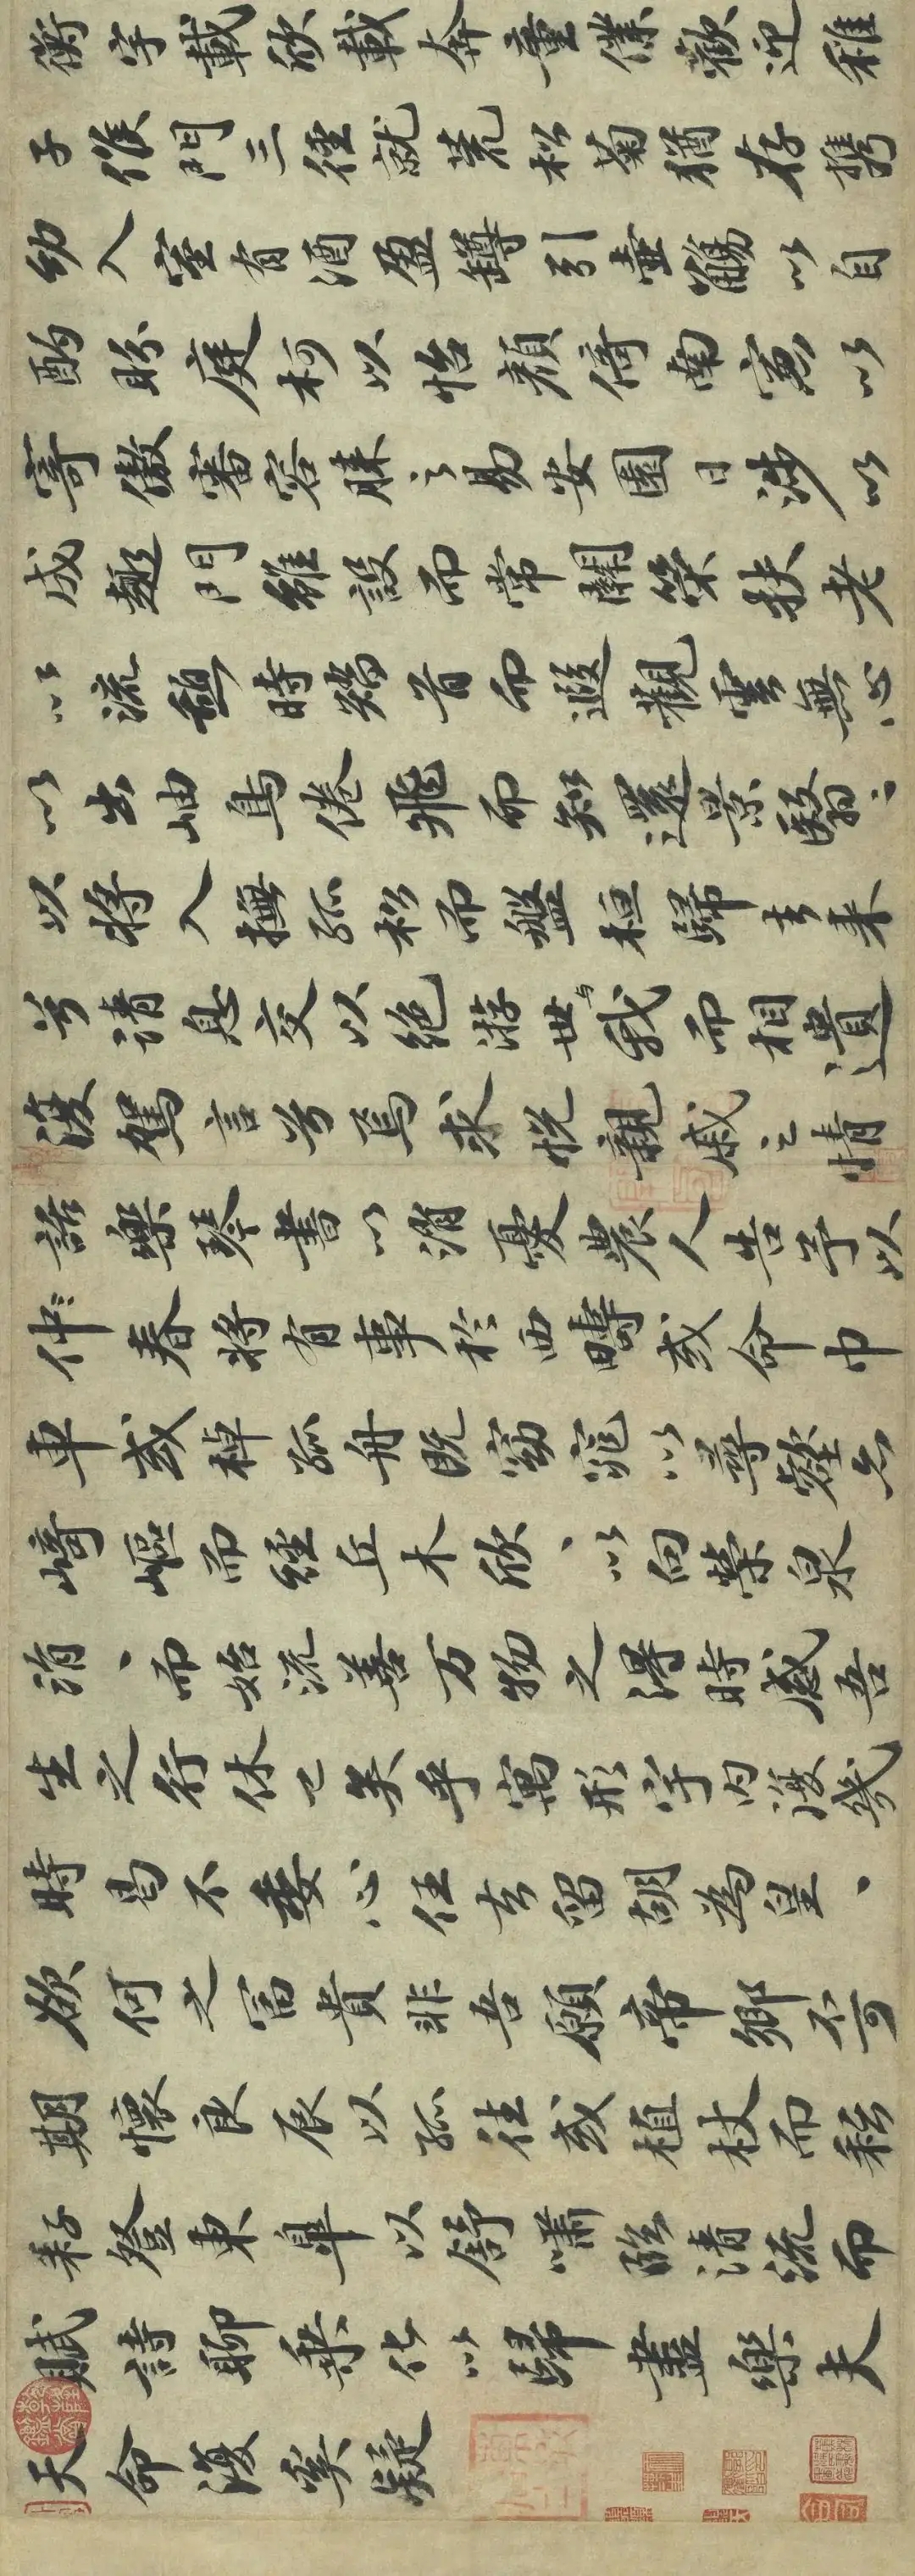 衡宇載欣載奔童僕歡迎稚
子候門三徑就荒松菊猶存攜
幼入室有酒盈罇引壺觴以自
酌眄庭柯以怡顏倚南窗以
寄傲審容膝之易安園日涉以
成趣門雖設而常關策扶老
以流憩時矯首而遐觀雲無心
以出岫鳥倦飛而知還景翳〻
以將入撫孤松而盤桓歸去來
兮請息交以絕游世与我而相遺
復駕言兮焉求悅親戚之情
話樂琴書以消憂農人告予以
仲春將有事於西疇或命巾
車或棹孤舟既窈窕以尋壑亦
崎嶇而經丘木欣〻以向榮泉
涓〻而始流善万物之得時感吾
生之行休已矣乎寓形宇內復幾
時曷不委心任去留胡為皇〻
欲何之富貴非吾願帝鄉不可
期懷良辰以孤往或植杖而耘
耔登東皋以舒嘯臨清流而
賦詩聊乘化以歸盡樂夫
天命復奚疑